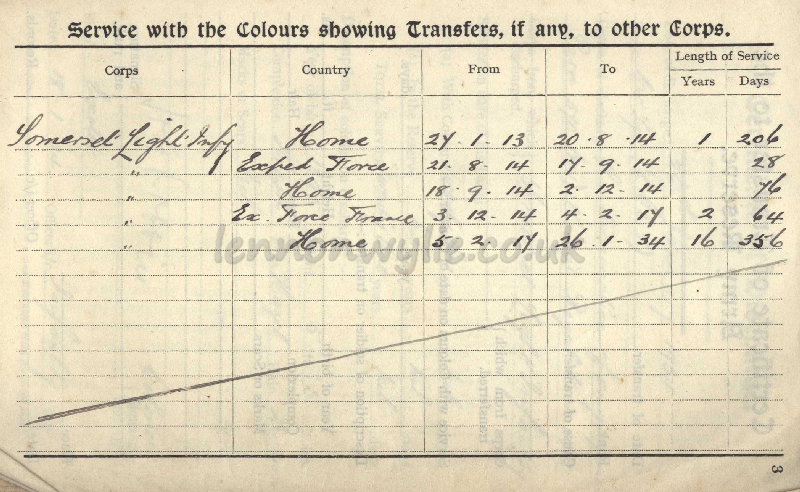 Service with the Colours showing Transfers, if any, to other Corps.
Corps Country From To Length of Service
Years Days
Somerset Light Infy Home 27 . 1 . 13 20 . 8 . 14 1 206
" Exped Force 21 . 8 . 14 17 . 9 . 14 28
" Home 18 . 9 . 14 2 . 12 . 14 76
" Ex. Force France 3 . 12 . 14 4 . 2 . 17 2 64
" Home 5 . 2 . 17 26 . 1 . 34 16 356
lennonwylie.co.uk
3